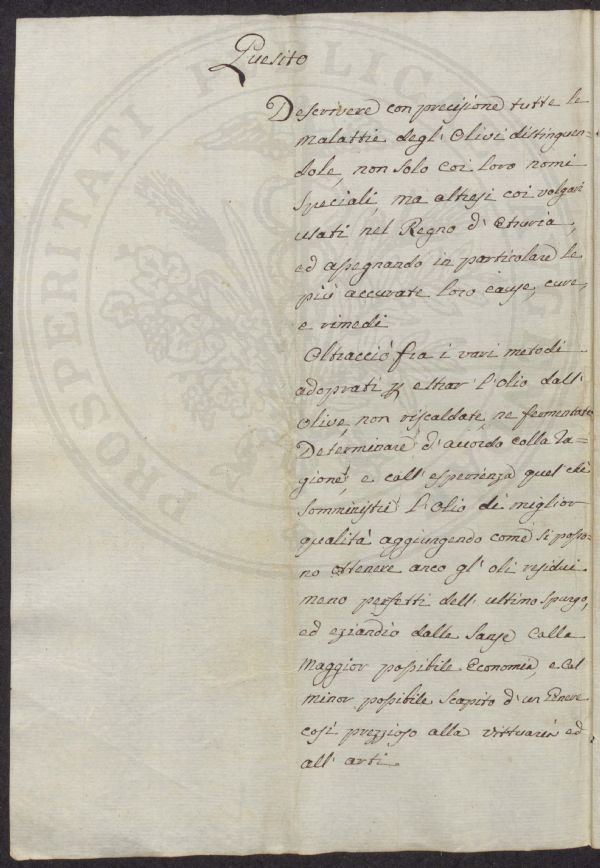 Quesito
Descrivere con precisione tutte le
malattie degl' Olivi distinguen=
dole, non solo coi loro nomi
speciali, ma altresi coi volgari
usati nel Regno d' Etruria,
ed assegnando in particolare le
più accurate loro cause, cure,
e rimedi
Oltracciò fra i vari metodi
adoprati p estrar l'Olio dall'
Olive, non riscaldate, ne fermentate
Determinare d' accordo colla ra=
gione, e coll' esperienza quel che
somministri l'Olio di miglior
qualità aggiungendo come si posso=
no ottenere anco gl' oli residui
meno perfetti dell' ultimo spurgo,
ed eziandio dalle sanse colla
maggior possibile Economia, e col
minor possibile scapito d' un Genere
così prezzioso alla vittuaria ed
all' arti.
PROSPERITATI PUBLICAE